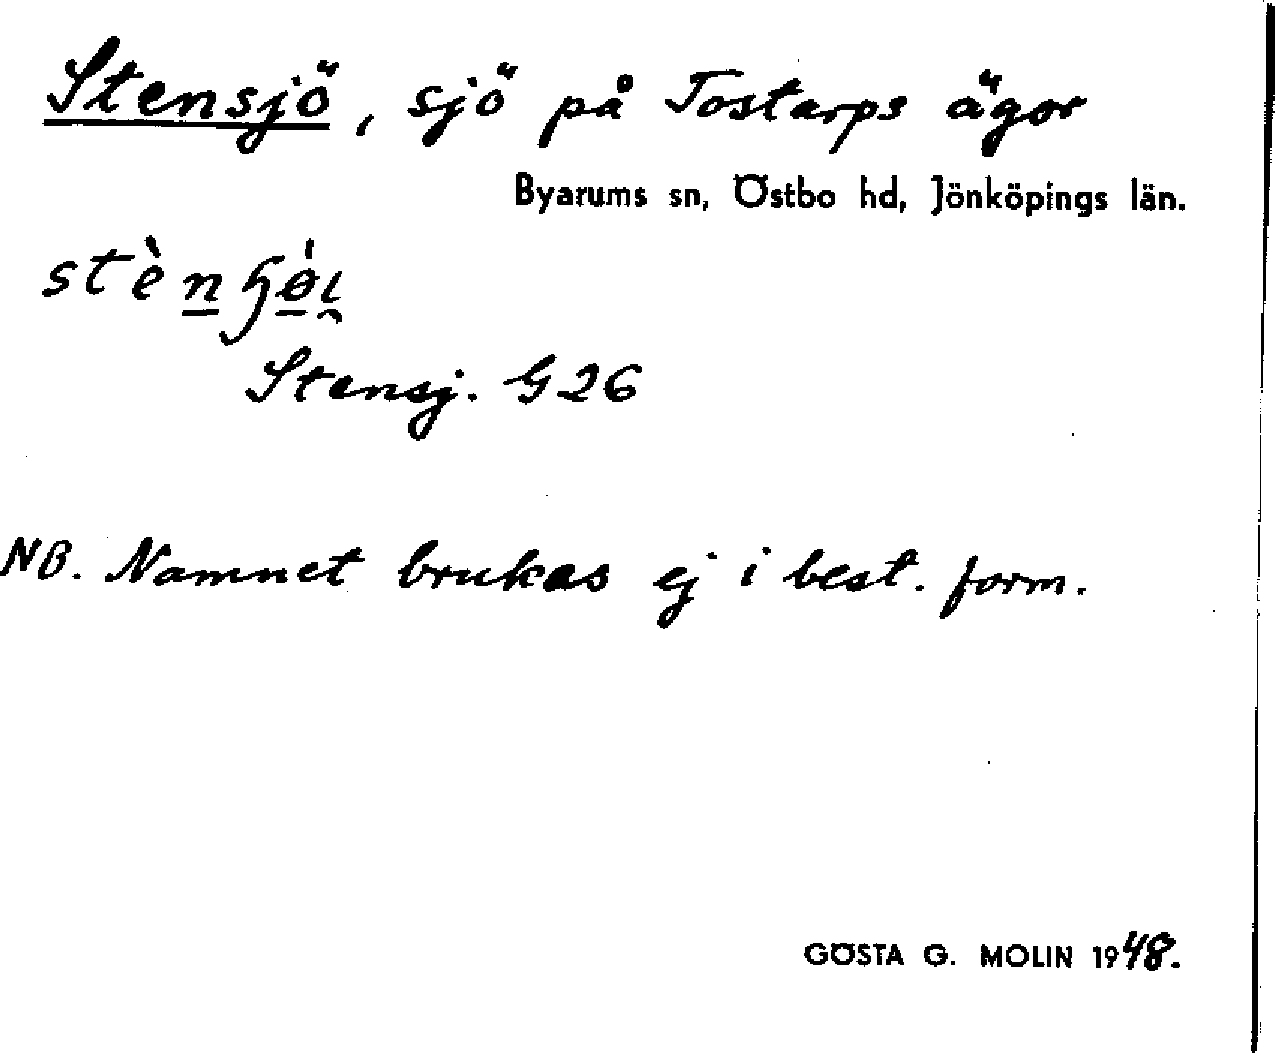 Stensjö, sjö på Tostarps ägor
Byarums sn, Östbo hd, Jönköpings län.
Stensj. G26
NB. Namnet brukas ej i best. form.
GÖSTA G. MOLIN 1948.